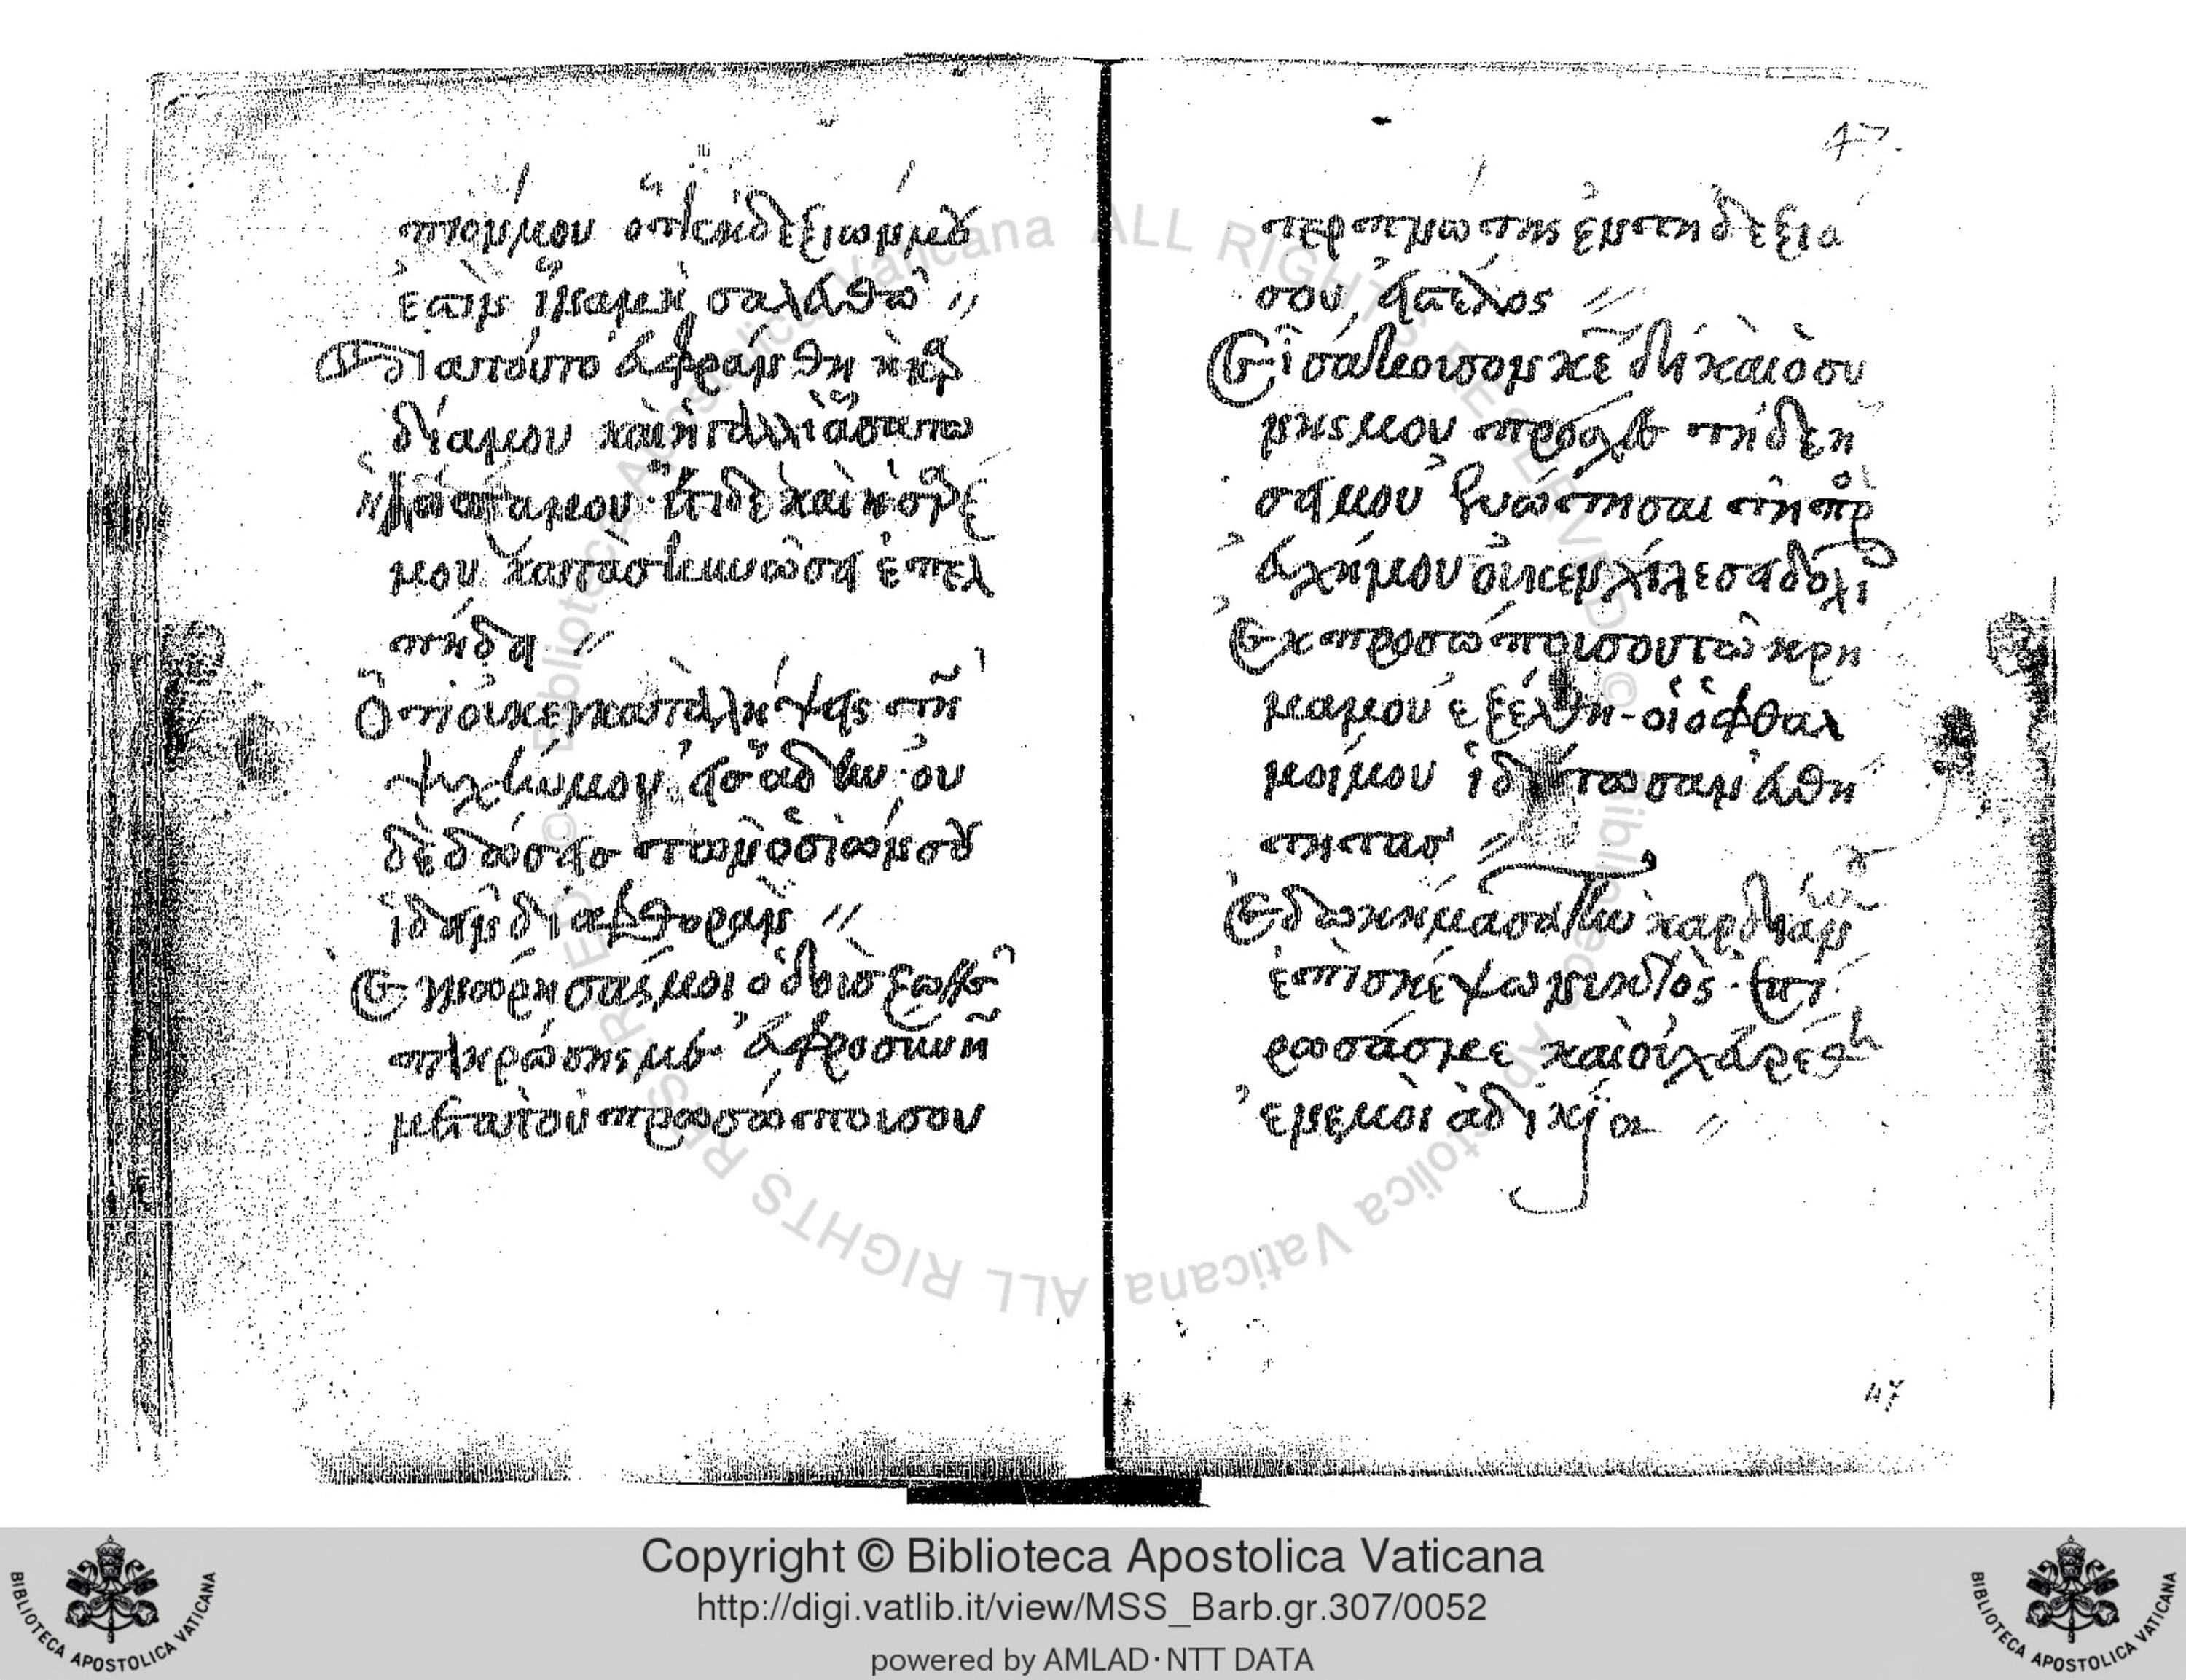 πιόν μου ὅτι εκ δεξιων μού
εστὶν ἵνα μὴ σαλευθῶ //
δια τούτο ευφράνθη ἡ καρ
δία μου καὶ ἠγαλλιάσατω
ἡ γλώσσα μου· ἔτι δὲ καὶ ἡ σὰρξ
μου κατασκηνώσει ἐπ ελ
πήδα //
Ὅτι οὐκ εγκαταλήψεις τὴν
ψυχήν μου εἰς ἅδην· ὀυ
δὲ δώσεις τὼν ὁσιών σού
ἰδεῖν διαφθορὰν //
Εγνώρησάς μοι ὁδοὺς ζωῆς
πληρώσης με· ευφροσύνη
μετὰ τοῦ προσώπου σου
τερπνώτης ἐν τη δεξια
σου εἰς τέλος //
Εἰσάκουσον κε δηκαιοσύ
νης μου πρόσχες τῆ δεή
σει μου ενώτησαι τὴν προσ
ευχήν μου οὐκ εν χίλεσει δολί
Εκ προσώπου σου τὼ κρή
μα μου ἐξέλθη· οἱ ὀφθαλ
μοί μου ἰδέτωσαν ευθή
τητας //
Εδωκήμασας τὴν καρδίαν
ἐπισκέψω νυκτὸς· επι
ρωσάς με καὶ οὐχ ευρέθη
ἐν εμοὶ ἀδικία //
47
Copyright © Biblioteca Apostolica Vaticana
http://digi.vatlib.it/view/MSS_Barb.gr.307/0052
powered by AMLAD·NTT DATA
BIBLIOTECA APOSTOLICA VATICANA
BIBLIOTECA APOSTOLICA VATICANA